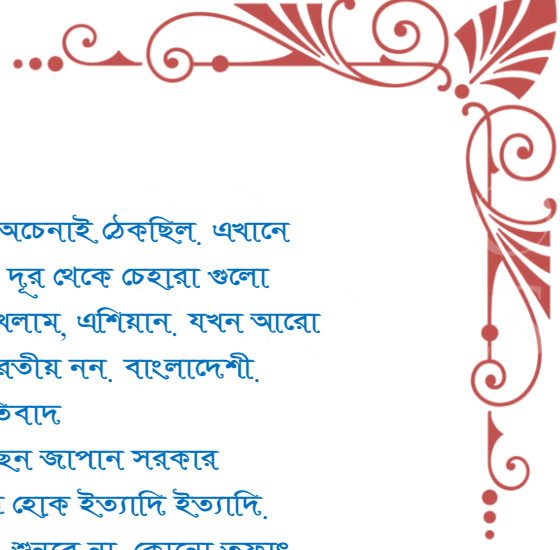 অচেনাই ঠেকছিল. এখানে
দূর থেকে চেহারা গুলো
এশিয়ান. যখন আরো
নন. বাংলাদেশী.
জাপান সরকার
হোক ইত্যাদি ইত্যাদি.
শুনবে না. কোনো